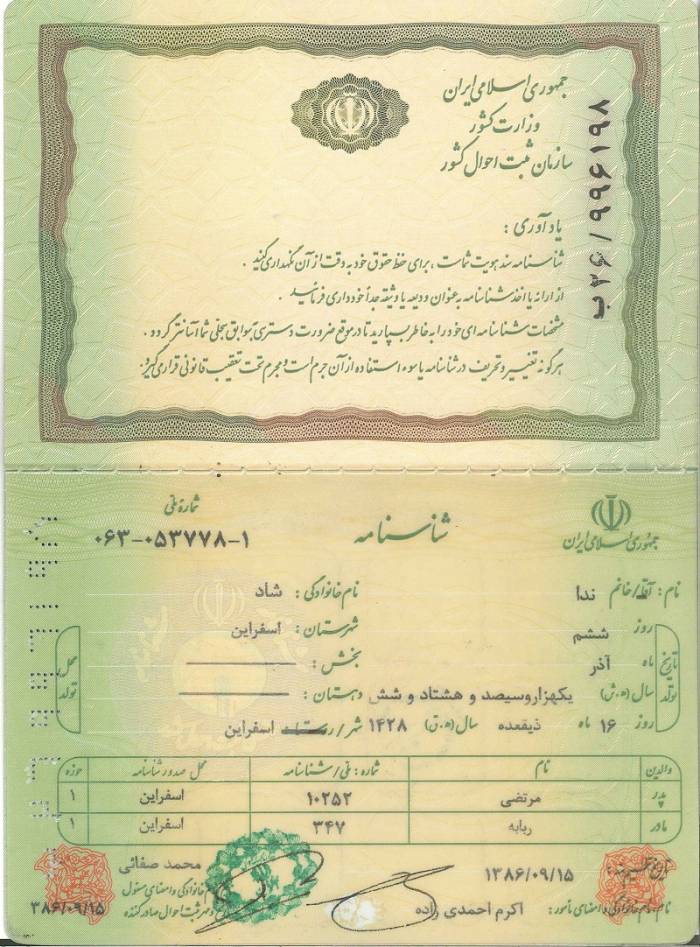 جمهوری اسلامی ایران
وزارت کشور
سازمان ثبت احوال کشور
ب۲۶/۹۹۶۱۹۸
یادآوری :
شناسنامه سند هویت شماست ، برای حفظ حقوق خود به دقت از آن نگهداری کنید .
از ارائه یا اخذ شناسنامه به عنوان ودیعه یا وثیقه جداً خودداری فرمائید .
مشخصات شناسنامه ای خود را به خاطر بسپارید تا در موقع ضرورت دسترسی به سوابق سجلی شما آسانتر گردد .
هرگونه تغییر و تحریف در شناسنامه یا سوء استفاده از آن جرم است و مجرم تحت تعقیب قانونی قرار می گیرد.
جمهوری اسلامی ایران
شناسنامه
شماره ملی
۰۶۳-۰۵۳۷۷۸-۱
نام : آقا/خانم ندا نام خانوادگی : شاد
تاریخ تولد
روز ششم
ماه آذر
سال (ه.ش) یکهزاروسیصد و هشتاد و شش
روز ۱۶ ماه ذیقعده سال (ه.ق) ۱۴۲۸
محل تولد
شهرستان : اسفراین
بخش :
دهستان :
شهر/روستا اسفراین
والدین نام شماره : ملی/شناسنامه محل صدور شناسنامه حوزه
پدر مرتضی ۱۰۲۵۲ اسفراین ۱
مادر ربابه ۳۴۷ اسفراین ۱
تاریخ تنظیم سند : ۱۳۸۶/۰۹/۱۵
نام،نام خانوادگی و امضای مأمور : اکرم احمدی زاده
محمد صفائی
نام خانوادگی و امضای مسئول
و مهر ثبت احوال صادرکننده
۱۳۸۶/۰۹/۱۵